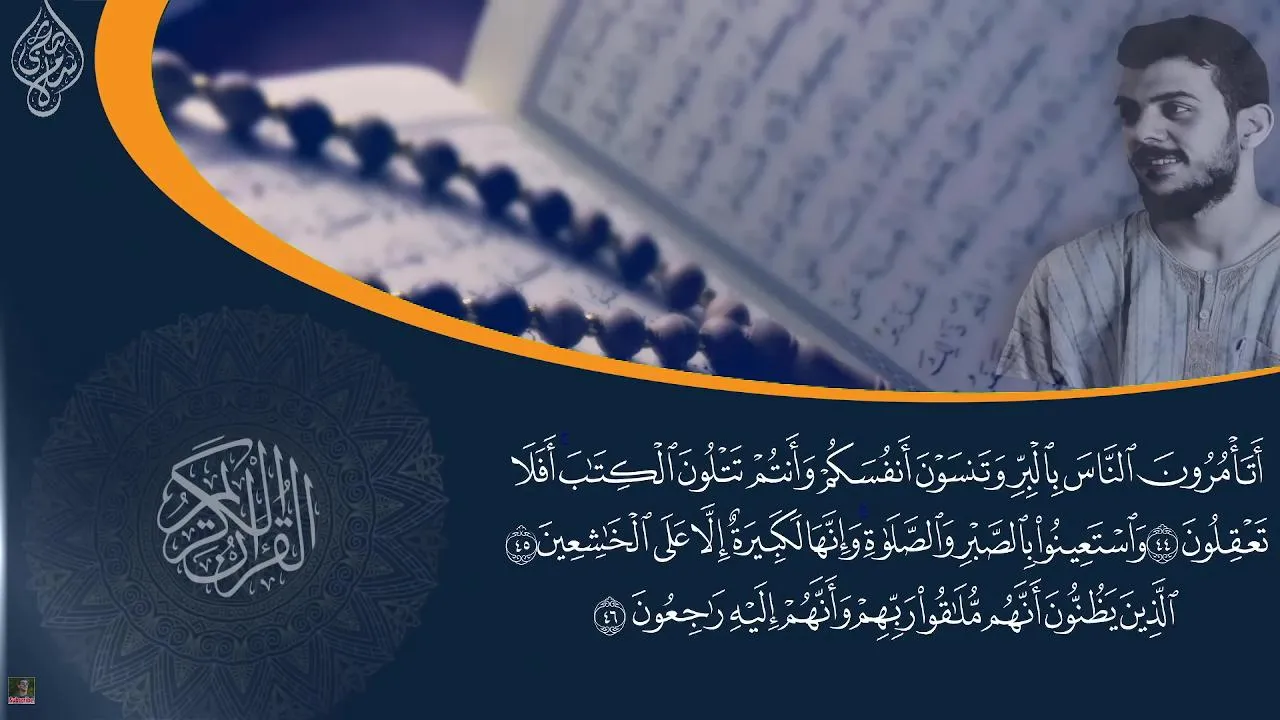 أَتَأْمُرُونَ ٱلنَّاسَ بِٱلْبِرِّ وَتَنسَوْنَ أَنفُسَكُمْ وَأَنتُمْ تَتْلُونَ ٱلْكِتَٰبَ ۚ أَفَلَا
تَعْقِلُونَ ٤٤ وَٱسْتَعِينُوا۟ بِٱلصَّبْرِ وَٱلصَّلَوٰةِ ۚ وَإِنَّهَا لَكَبِيرَةٌ إِلَّا عَلَى ٱلْخَٰشِعِينَ ٤٥
ٱلَّذِينَ يَظُنُّونَ أَنَّهُم مُّلَٰقُوا۟ رَبِّهِمْ وَأَنَّهُمْ إِلَيْهِ رَٰجِعُونَ ٤٦
القرآن الكريم
Subscribe